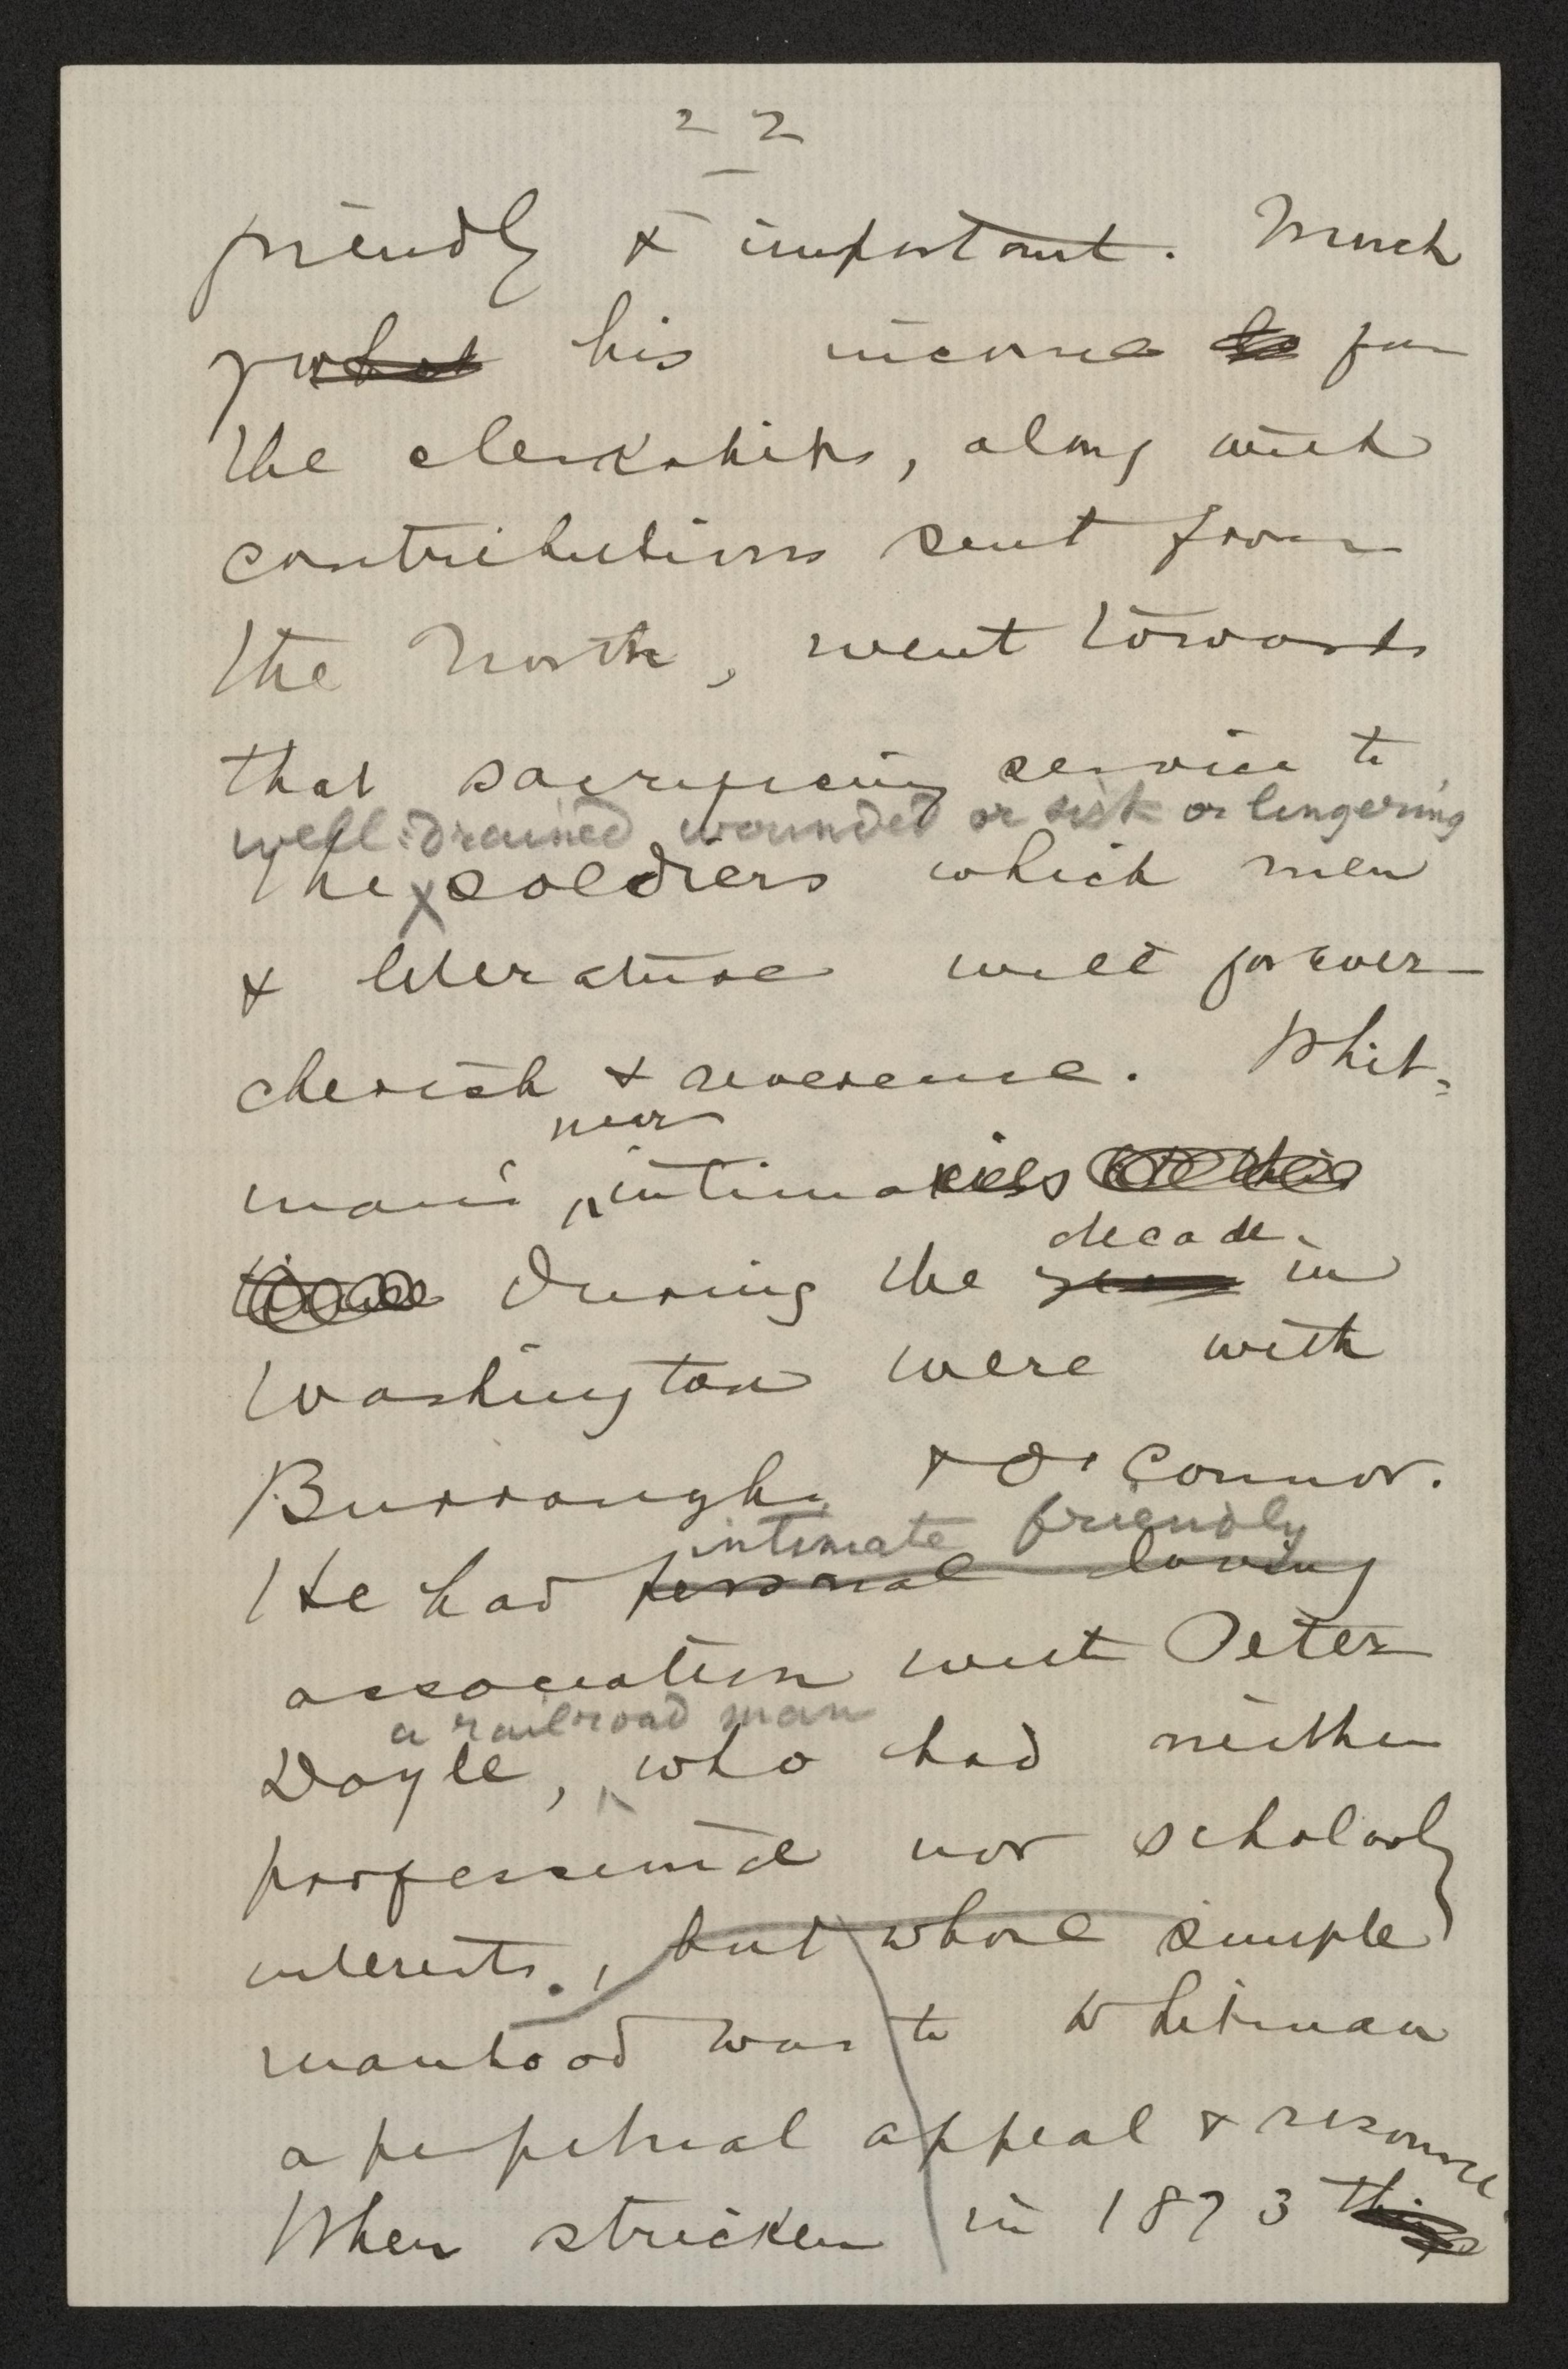 22
friendly & important. Much
of what his income for
the clerkships, along with
contributions sent from
the North, went towards
that sacrificing service to
well-drained wounded or sick or lingering
the soldiers which men
& literature will forever
cherish & reverence. Whit-
near
man's intimacies
decade
during the years in
Washington were with
Burroughs & O'Connor.
intimate friendly
He had personal loving
association with Peter
a railroad man
Doyle, who had neither
professional nor scholarly
interests., but whose simple
manhood was to Whitman
a perpetual appeal & resource.
When stricken in 1873 this